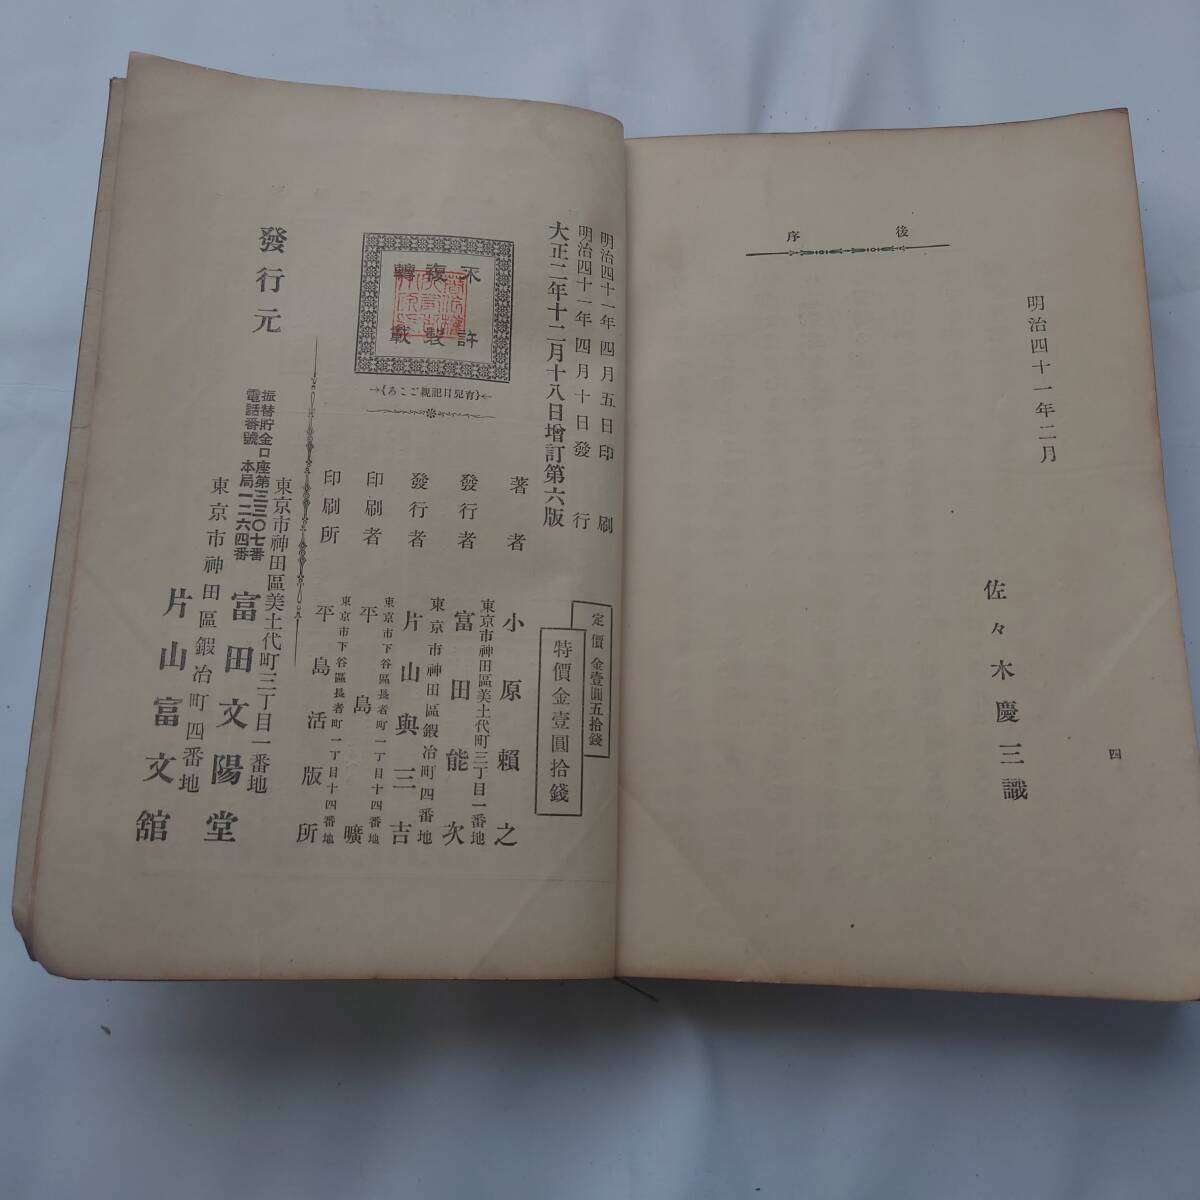 後序
明治四十一年二月
佐々木慶三識
四
明治四十一年四月五日印刷
明治四十一年四月十日發行
大正二年十二月十八日增訂第六版
定價金壹圓五拾錢
特價金壹圓拾錢
不許
複製
轉載
(育兒日記親ごころ)
著者 小原賴之
東京市神田區美土代町三丁目一番地
發行者 富田能次
東京市神田區鍛冶町四番地
發行者 片山與三吉
東京市下谷區長者町一丁目十四番地
印刷者 平島曠
東京市下谷區長者町一丁目十四番地
印刷所 平島活版所
發行元
東京市神田區美土代町三丁目一番地
富田文陽堂
振替貯金口座第三三〇七番
電話番號本局一二六四番
東京市神田區鍛冶町四番地
片山富文舘